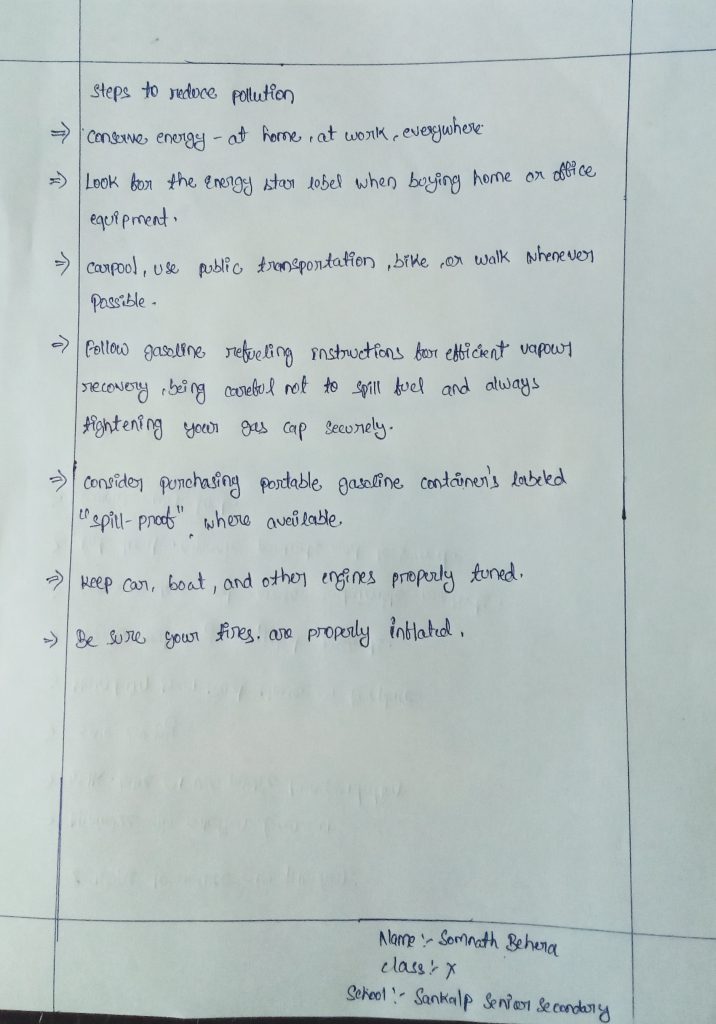 Steps to reduce pollution
⇒ conserve energy - at home, at work, everywhere
⇒ Look for the energy star lobel when buying home or office
equipment.
⇒ carpool, use public transportation, bike, or walk whenever
Possible.
⇒ Follow gasoline refueling instructions for efficient vapour
recovery, being careful not to spill fuel and always
tightening your gas cap securely.
⇒ consider purchasing portable gasoline container's labeled
"spill-proof", where available.
⇒ keep car, boat, and other engines properly tuned.
⇒ Be sure your tires. are properly inflated.
Name :- Somnath Behera
class :- X
School :- Sankalp Senior Secondary